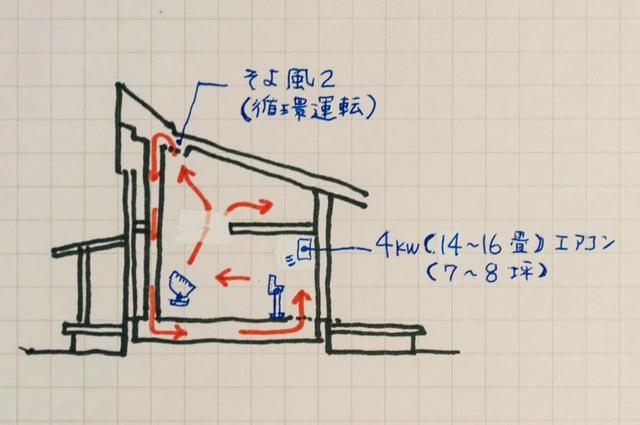 そよ風2
(循環運転)
4KW(14〜16畳)エアコン
(7〜8坪)